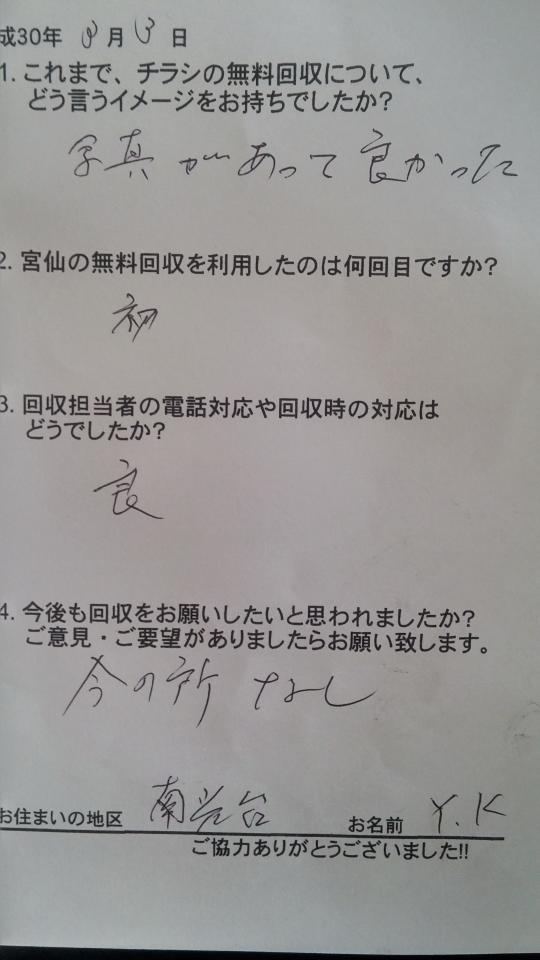 成30年 8月13日
1. これまで、チラシの無料回収について、
どう言うイメージをお持ちでしたか?
写真があって良かった
2. 宮仙の無料回収を利用したのは何回目ですか?
初
3. 回収担当者の電話対応や回収時の対応は
どうでしたか?
良
4. 今後も回収をお願いしたいと思われましたか?
ご意見・ご要望がありましたらお願い致します。
今の所 なし
お住まいの地区 南光台 お名前 Y.K
ご協力ありがとうございました!!